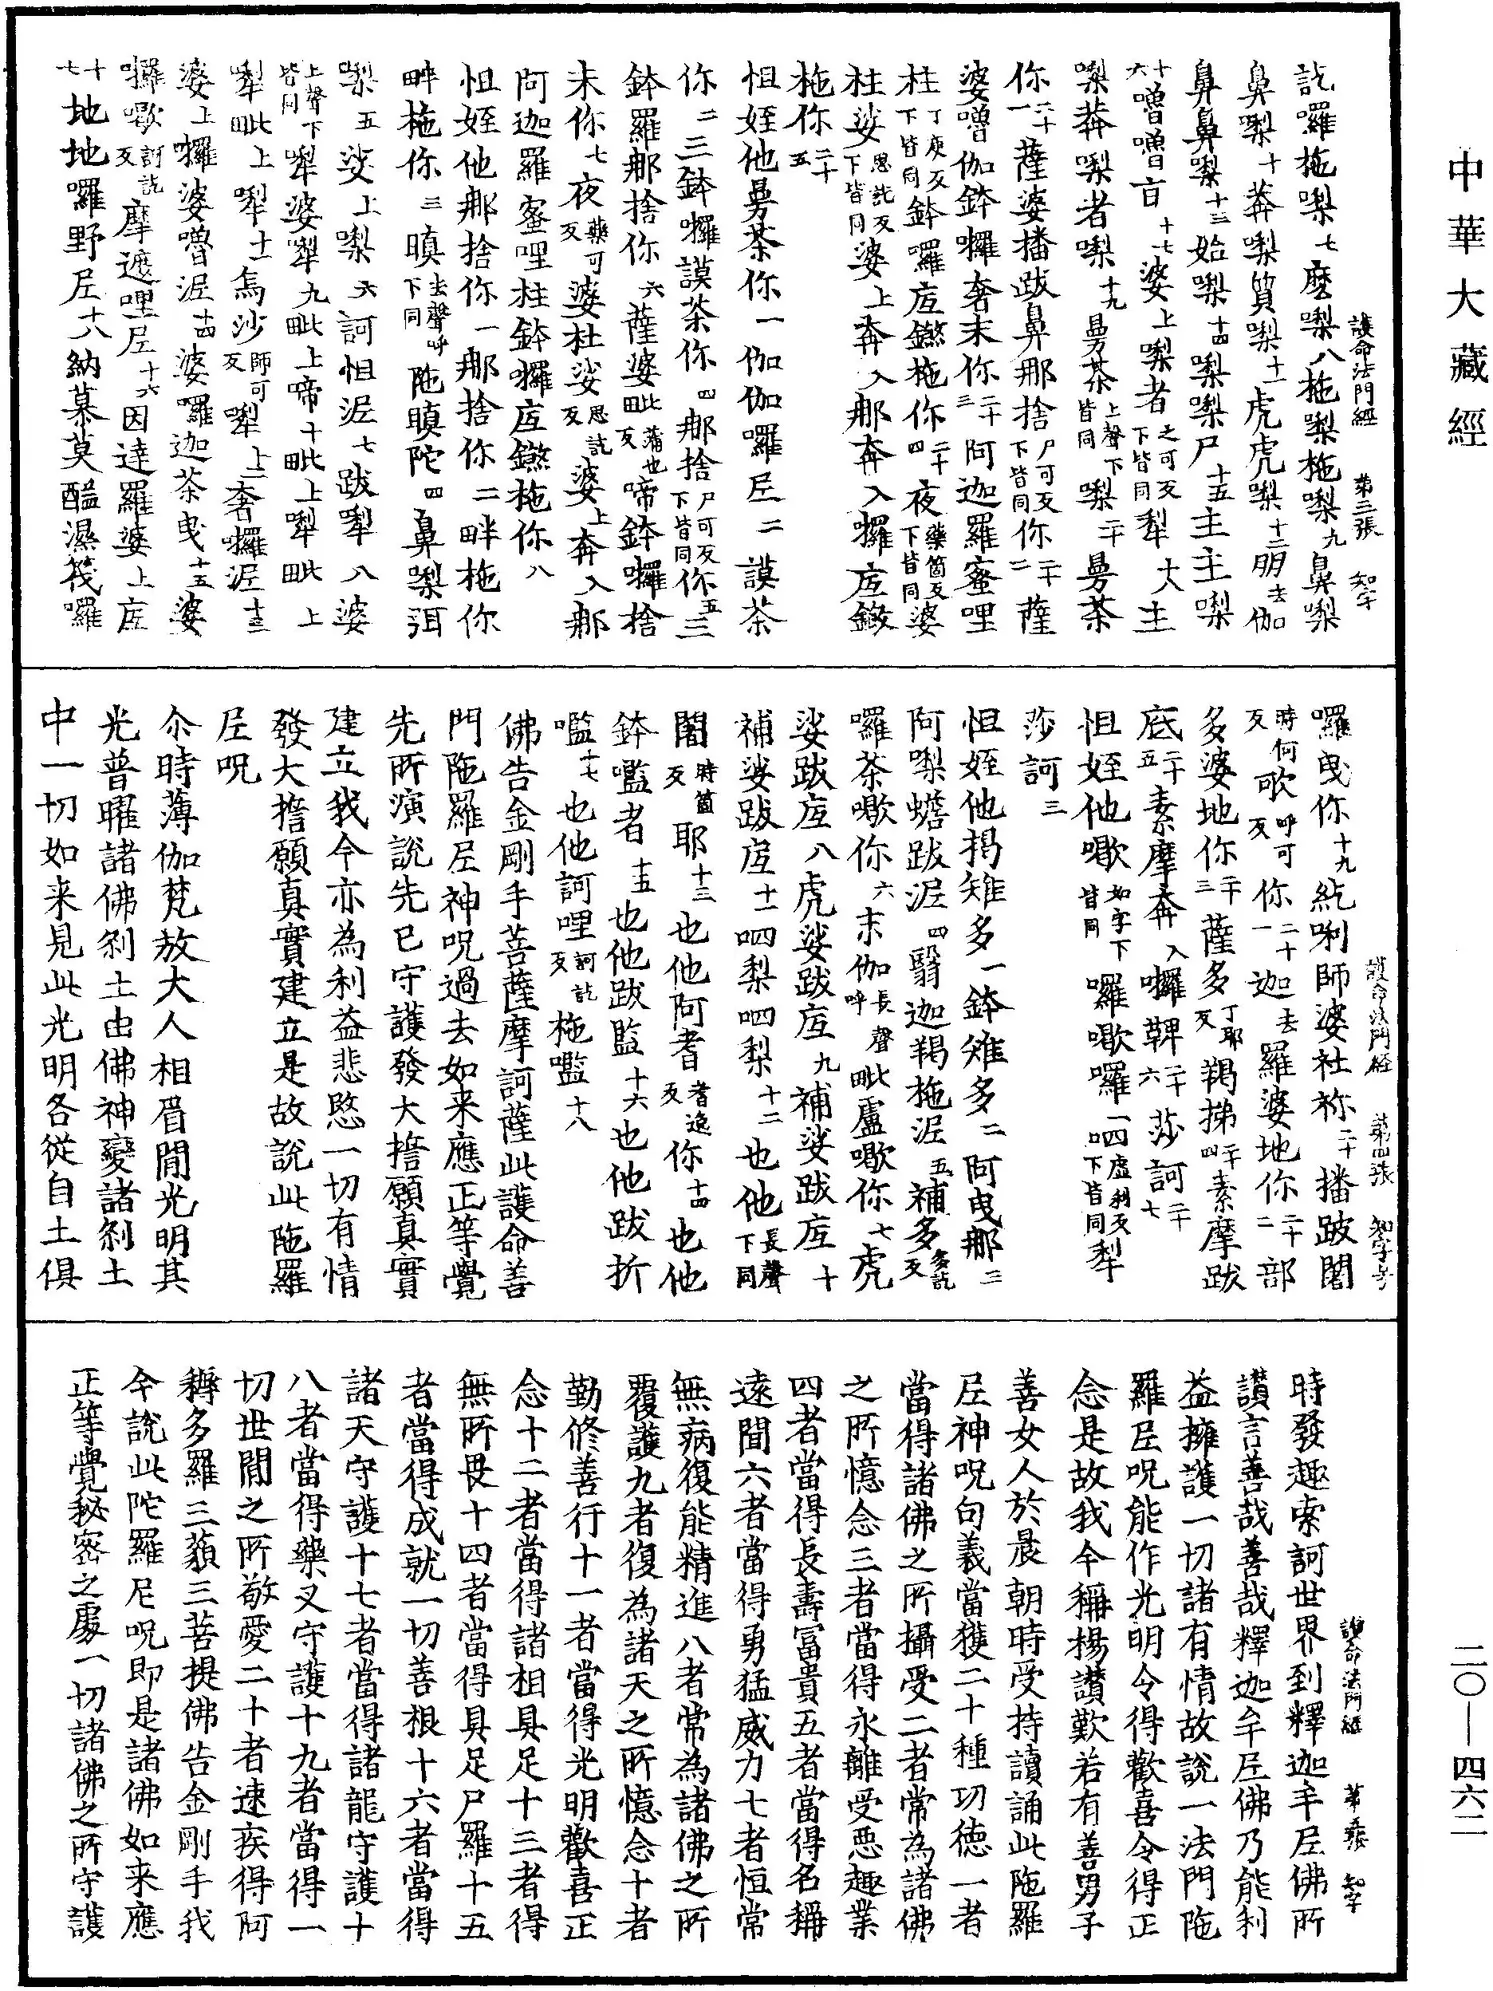 中華大藏經
護命法門經 第三張 知字
訖羅拖㗚七麽㗚八拖㗚拖㗚九鼻㗚
鼻㗚十莾㗚質㗚十一虎虎㗚十二朋去伽
鼻鼻㗚十三始㗚十四㗚㗚尸十五主主㗚
十六噌噌亯十七婆上㗚者之可反下皆同犁十八主
㗚莾㗚者㗚十九㬅茶上聲下皆同㗚二十㬅茶
你二十一薩婆播跋鼻那捨尸可反下皆同你二十二薩
婆噌伽鉢囉奢末你二十三阿迦羅蜜哩
柱丁庾反下皆同鉢囉底鐖拖你二十四夜藥箇反下皆同婆
柱娑思訖反下皆同婆上莾入那莾入囉底鐖
拖你二十五
怛姪他㬅茶你一伽伽囉尼二謨茶
你二三鉢囉謨茶你四那捨尸可反下皆同你五三
鉢羅那捨你六薩婆毗蒲也反啼鉢囉捨
末你七夜藥可反婆柱娑思訖反婆上莾入那
阿迦羅蜜哩柱鉢囉底鐖拖你八
怛姪他那捨你一那捨你二畔拖你
畔拖你三瞋去聲呼下同陁瞋陀四鼻㗚洱
㗚五娑上㗚六訶怛泥七跋犁八婆
上聲下皆同犁婆犁九毗上啼十毗上犁毗上
犁毗上犁十一焉沙師可反犁上十二奢囉泥十三
婆上囉婆噌泥十四婆羅迦茶曳十五婆
囉歌訶訖反摩遮哩尼十六因達羅婆上底
十七地地囉野尼十八納慕莫醯濕筏囉
護命法門經 第四張 知字号
囉曳你十九紇唎師婆社祢二十播跛闍
時何反歌呼可反你二十一迦去羅婆地你二十二部
多婆地你二十三薩多丁耶反羯挮二十四素摩跋
底二十五素摩莾入囉鞞二十六莎訶二十七
怛姪他囇如字下皆同囉囇囉一呬虛利反下皆同犁
莎訶三
怛姪他揭雉多一鉢雉多二阿曳那三
阿㗚蟾跋泥四翳迦羯拖泥五補多多訖反
囉茶囇你六末伽長聲呼毗盧囇你七虎
娑跋底八虎娑跋底九補娑跋底十
補娑跋底十一呬梨呬梨十二也他長聲下同
闍時箇反耶十三也他阿耆耆逸反你十四也他
鉢嚂者十五也他跋監十六也他跋折
嚂十七也他訶哩訶訖反拖嚂十八
佛告金剛手菩薩摩訶薩此護命善
門陁羅尼神呪過去如来應正等覺
先所演說先已守護發大擔願真實
建立我今亦為利益悲愍一切有情
發大擔願真實建立是故說此陁羅
尼呪
尒時薄伽梵放大人相眉閒光明其
光普曜諸佛刹土由佛神變諸刹土
中一切如来見此光明各從自土俱
護命法門經 第五張 知字
時發趣索訶世界到釋迦牟尼佛所
讚言善哉善哉釋迦牟尼佛乃能利
益擁護一切諸有情故說一法門陁
羅尼呪能作光明令得歡喜令得正
念是故我今稱揚讚歎若有善男子
善女人於晨朝時受持讀誦此陁羅
尼神呪句義當獲二十種功德一者
當得諸佛之所攝受二者常為諸佛
之所憶念三者當得永離受惡趣業
四者當得長壽冨貴五者當得名稱
遠聞六者當得勇猛威力七者恒常
無病復能精進八者常為諸佛之所
覆護九者復為諸天之所憶念十者
勤修善行十一者當得光明歡喜正
念十二者當得諸相具足十三者得
無所畏十四者當得具足尸羅十五
者當得成就一切善根十六者當得
諸天守護十七者當得諸龍守護十
八者當得藥叉守護十九者當得一
切世間之所敬愛二十者速疾得阿
耨多羅三藐三菩提佛告金剛手我
今說此陀羅尼呪即是諸佛如来應
正等覺秘密之處一切諸佛之所守護
二〇—四六二